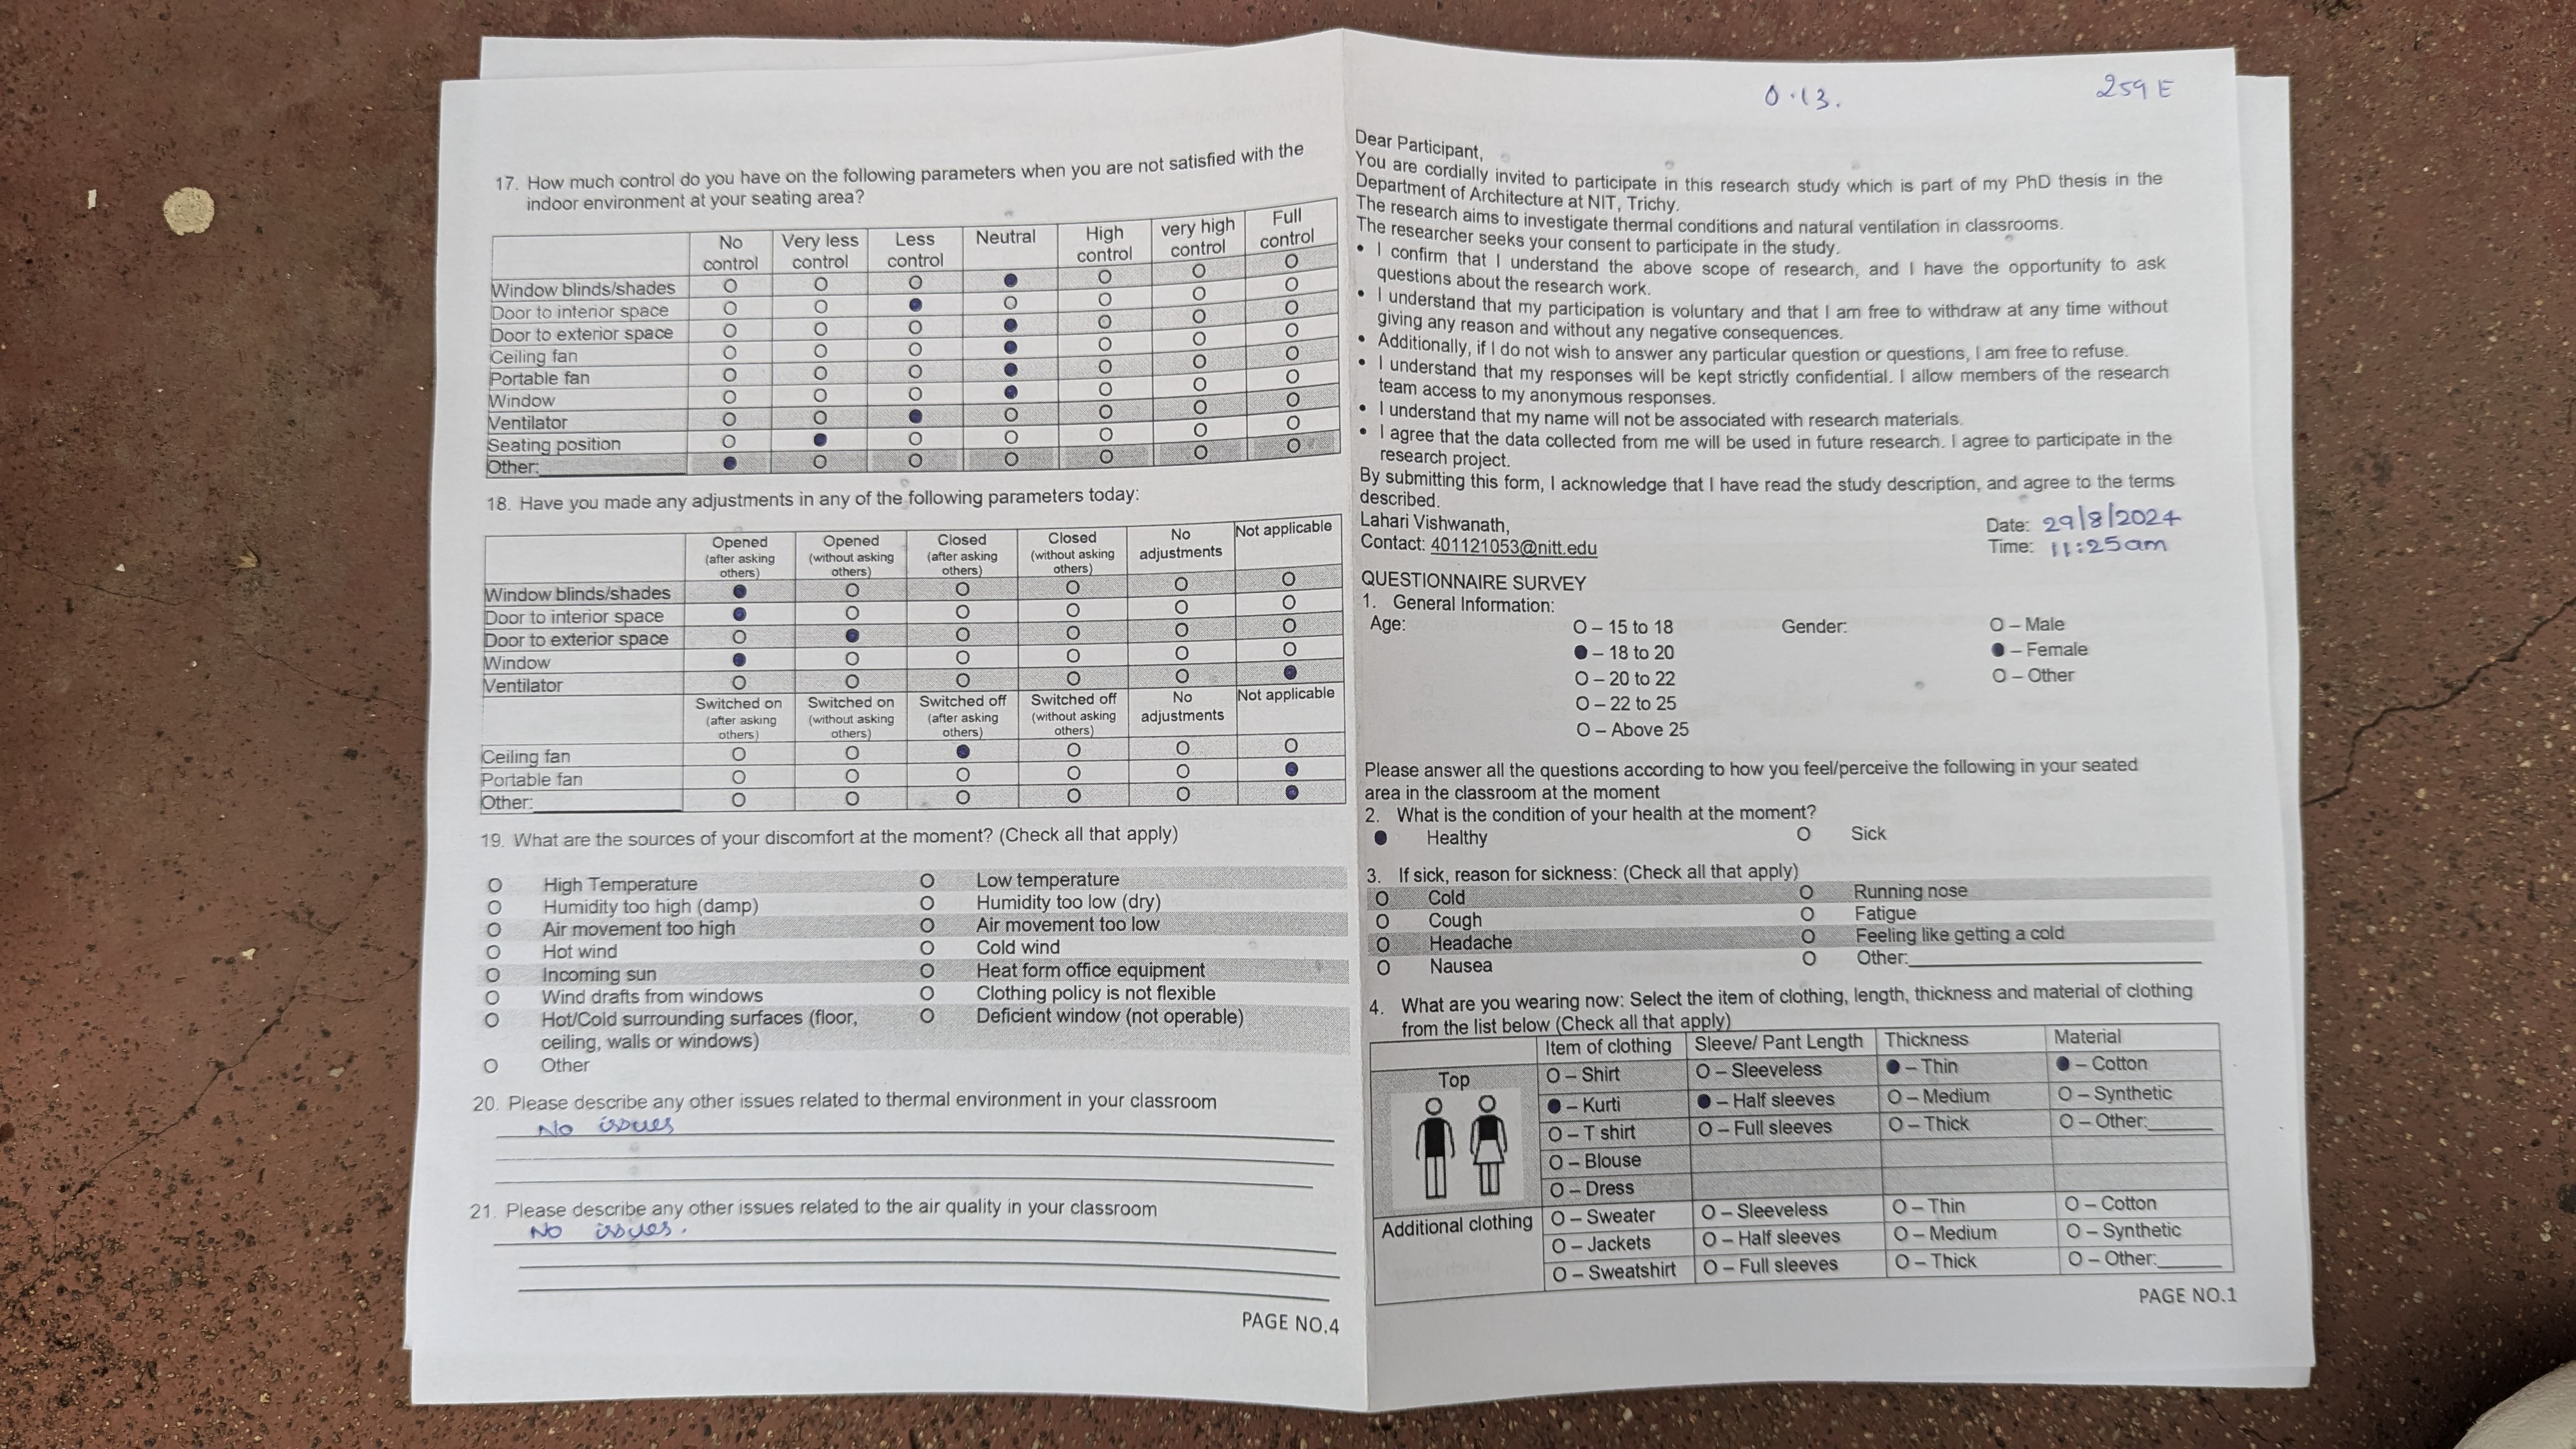 17. How much control do you have on the following parameters when you are not satisfied with the
indoor environment at your seating area?
No control Very less control Less control Neutral High control very high control Full control
Window blinds/shades O O O ● O O O
Door to interior space O O ● O O O O
Door to exterior space O O O ● O O O
Ceiling fan O O O ● O O O
Portable fan O O O ● O O O
Window O O O ● O O O
Ventilator O O ● O O O O
Seating position O ● O O O O O
Other: ● O O O O O O
18. Have you made any adjustments in any of the following parameters today:
Opened (after asking others) Opened (without asking others) Closed (after asking others) Closed (without asking others) No adjustments Not applicable
Window blinds/shades ● O O O O O
Door to interior space ● O O O O O
Door to exterior space O ● O O O O
Window ● O O O O O
Ventilator O O O O O ●
Switched on (after asking others) Switched on (without asking others) Switched off (after asking others) Switched off (without asking others) No adjustments Not applicable
Ceiling fan O O ● O O O
Portable fan O O O O O ●
Other: O O O O O ●
19. What are the sources of your discomfort at the moment? (Check all that apply)
O High Temperature O Low temperature
O Humidity too high (damp) O Humidity too low (dry)
O Air movement too high O Air movement too low
O Hot wind O Cold wind
O Incoming sun O Heat form office equipment
O Wind drafts from windows O Clothing policy is not flexible
O Hot/Cold surrounding surfaces (floor, O Deficient window (not operable)
ceiling, walls or windows)
O Other
20. Please describe any other issues related to thermal environment in your classroom
No issues
21. Please describe any other issues related to the air quality in your classroom
No issues.
PAGE NO.4
0.13. 259 E
Dear Participant,
You are cordially invited to participate in this research study which is part of my PhD thesis in the
Department of Architecture at NIT, Trichy.
The research aims to investigate thermal conditions and natural ventilation in classrooms.
The researcher seeks your consent to participate in the study.
• I confirm that I understand the above scope of research, and I have the opportunity to ask
questions about the research work.
• I understand that my participation is voluntary and that I am free to withdraw at any time without
giving any reason and without any negative consequences.
• Additionally, if I do not wish to answer any particular question or questions, I am free to refuse.
• I understand that my responses will be kept strictly confidential. I allow members of the research
team access to my anonymous responses.
• I understand that my name will not be associated with research materials.
• I agree that the data collected from me will be used in future research. I agree to participate in the
research project.
By submitting this form, I acknowledge that I have read the study description, and agree to the terms
described.
Lahari Vishwanath, Date: 29/8/2024
Contact: 401121053@nitt.edu Time: 11:25am
QUESTIONNAIRE SURVEY
1. General Information:
Age: O – 15 to 18 Gender: O – Male
● – 18 to 20 ● – Female
O – 20 to 22 O – Other
O – 22 to 25
O – Above 25
Please answer all the questions according to how you feel/perceive the following in your seated
area in the classroom at the moment
2. What is the condition of your health at the moment?
● Healthy O Sick
3. If sick, reason for sickness: (Check all that apply)
O Cold O Running nose
O Cough O Fatigue
O Headache O Feeling like getting a cold
O Nausea O Other:
4. What are you wearing now: Select the item of clothing, length, thickness and material of clothing
from the list below (Check all that apply)
Item of clothing Sleeve/ Pant Length Thickness Material
Top O – Shirt O – Sleeveless ● – Thin ● – Cotton
● – Kurti ● – Half sleeves O – Medium O – Synthetic
O – T shirt O – Full sleeves O – Thick O – Other:
O – Blouse
O – Dress
Additional clothing O – Sweater O – Sleeveless O – Thin O – Cotton
O – Jackets O – Half sleeves O – Medium O – Synthetic
O – Sweatshirt O – Full sleeves O – Thick O – Other:
PAGE NO.1